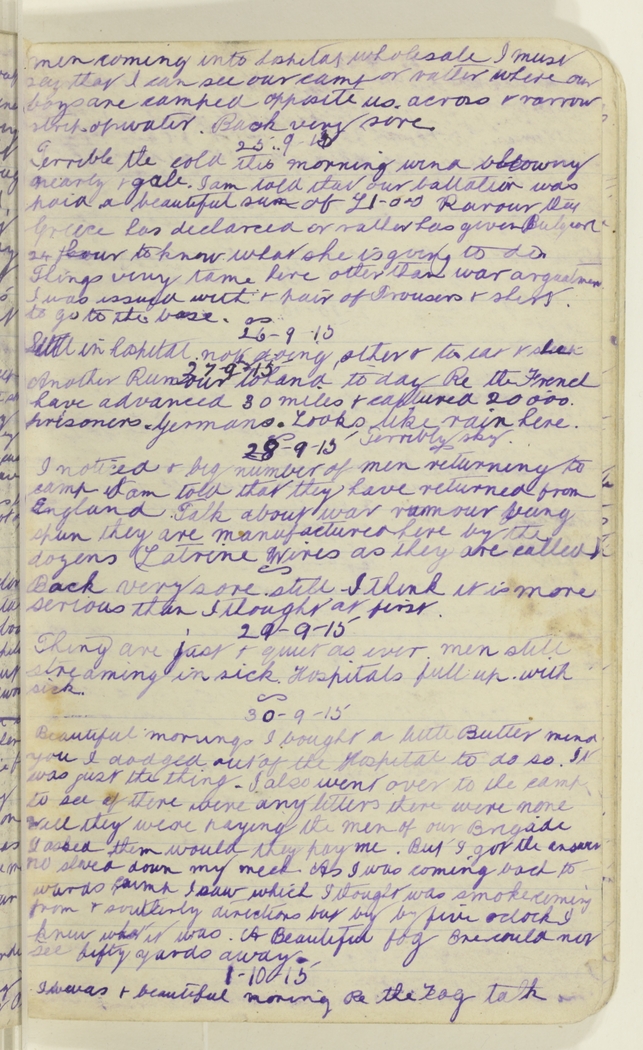 men coming into hospital wholesale I must
say that I can see our camp or rather where our
boys are camped opposite us. across & narrow
strip of water. Back very sore
25..9-15
Terrible the cold this morning wind blowing
nearly & gale. I am told that our battalion was
paid a beautiful sum of £1-0-0 Rumour
Greece has declared or rather has given Bulgaria
24 hour to know what she is going to do
Things very tame here other than war arguments
I was issued with & pair of Trousers & shirt.
to go to the base.
26-9-15
Still in hospital not doing other & to eat &
27-9-15
Another Rumour to hand to day Re the French
have advanced 30 miles & captured 20000.
prisoners. Germans. Looks like rain here.
Terribly
28-9-15
I noticed & big number of men returning to
camp I am told that they have returned from
England Talk about war rumour being
spun they are manufactured here by the
dozens (Latrine Wires as they are called)
Back very sore still I think it is more
serious than I thought at first.
29-9-15
Things are just & quiet as ever. men still
streaming in sick. Hospitals full up with
sick.
30-9-15
Beautiful mornings I bought a little Butter mind
you I dodged out of the Hospital to do so. It
was just the thing. I also went over to the camp
to see if there were any letters there were none
well they were paying the men of our Brigade
I asked them would they pay me. But I got the answer
no down my neck. As I was coming back to
wards I saw which I thought was smoke coming
from & southerly directions but by by five oclock I
knew what it was. A Beautiful fog One could not
see fifty yards away.
1-10-15
It was & beautiful morning Re the Fog talk